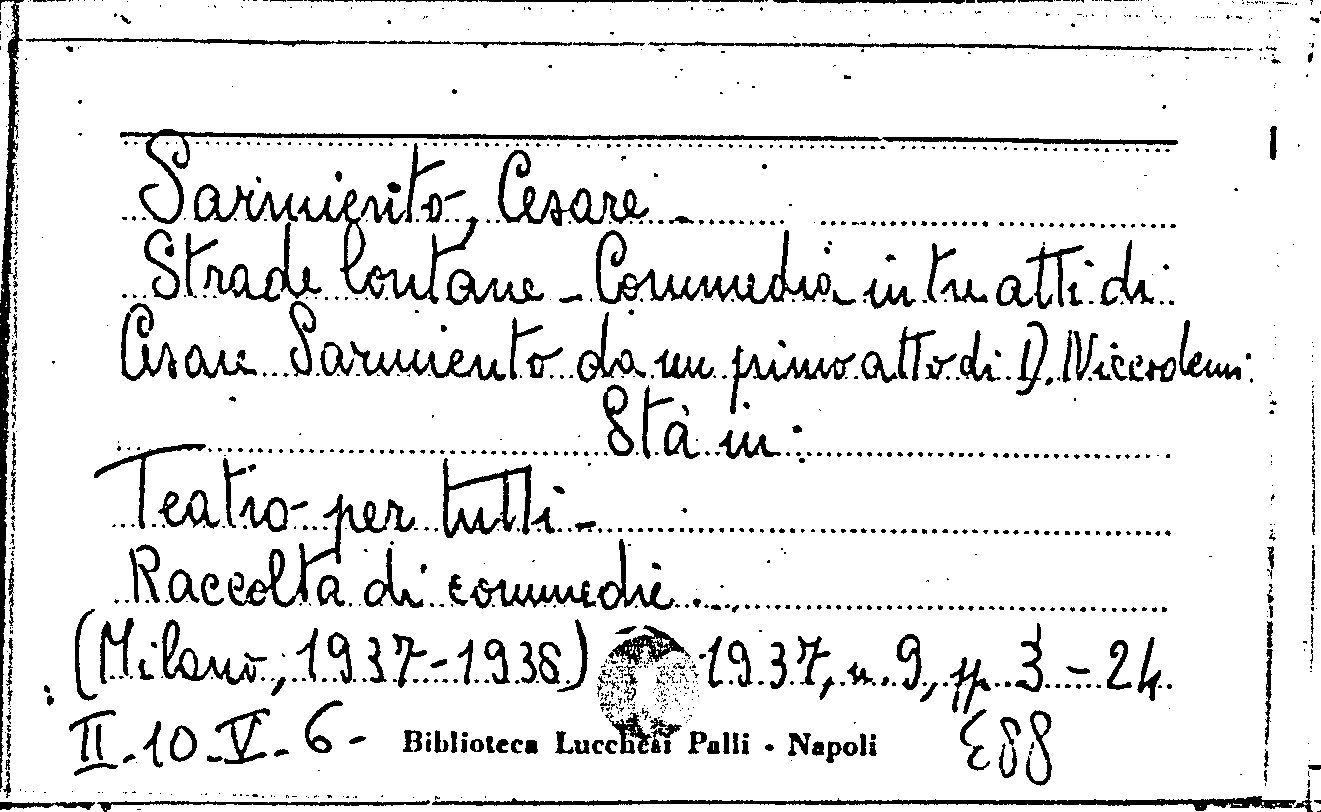 Sarmiento, Cesare -
Strade lontane - Commedia in tre atti di
Cesare Sarmiento da un primo atto di D. Niccodemi.
Stà in:
Teatro per tutti -
Raccolta di commedie ...
(Milano, 1937-1938) 1937, n. 9, pp. 3 - 24.
II - 10 - V - 6 - Biblioteca Lucchesi Palli - Napoli